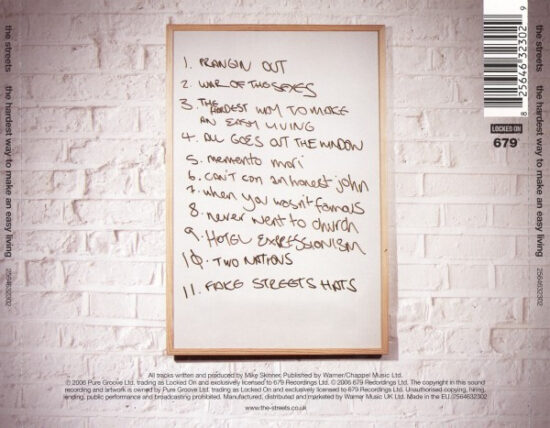 the streets the hardest way to make an easy living 2564632302
1. PRANGIN OUT
2. WAR OF THE SEXES
3. THE HARDEST WAY TO MAKE
AN EASY LIVING
4. ALL GOES OUT THE WINDOW
5. memento mori
6. can't con an honest john
7. when you wasn't famous
8. never went to church
9. HOTEL EXPRESSIONISM
10. TWO NATIONS
11. FAKE STREETS HATS
8 25646 32302 9
LOCKED ON
679
the streets the hardest way to make an easy living 2564632302
All tracks written and produced by Mike Skinner. Published by Warner/Chappel Music Ltd.
℗ 2006 Pure Groove Ltd. trading as Locked On and exclusively licensed to 679 Recordings Ltd. © 2006 679 Recordings Ltd. The copyright in this sound
recording and artwork is owned by Pure Groove Ltd. trading as Locked On and exclusively licensed to 679 Recordings Ltd. Unauthorised copying, hiring,
lending, public performance and broadcasting prohibited. Manufactured, distributed and marketed by Warner Music UK Ltd. Made in the EU./2564632302
www.the-streets.co.uk